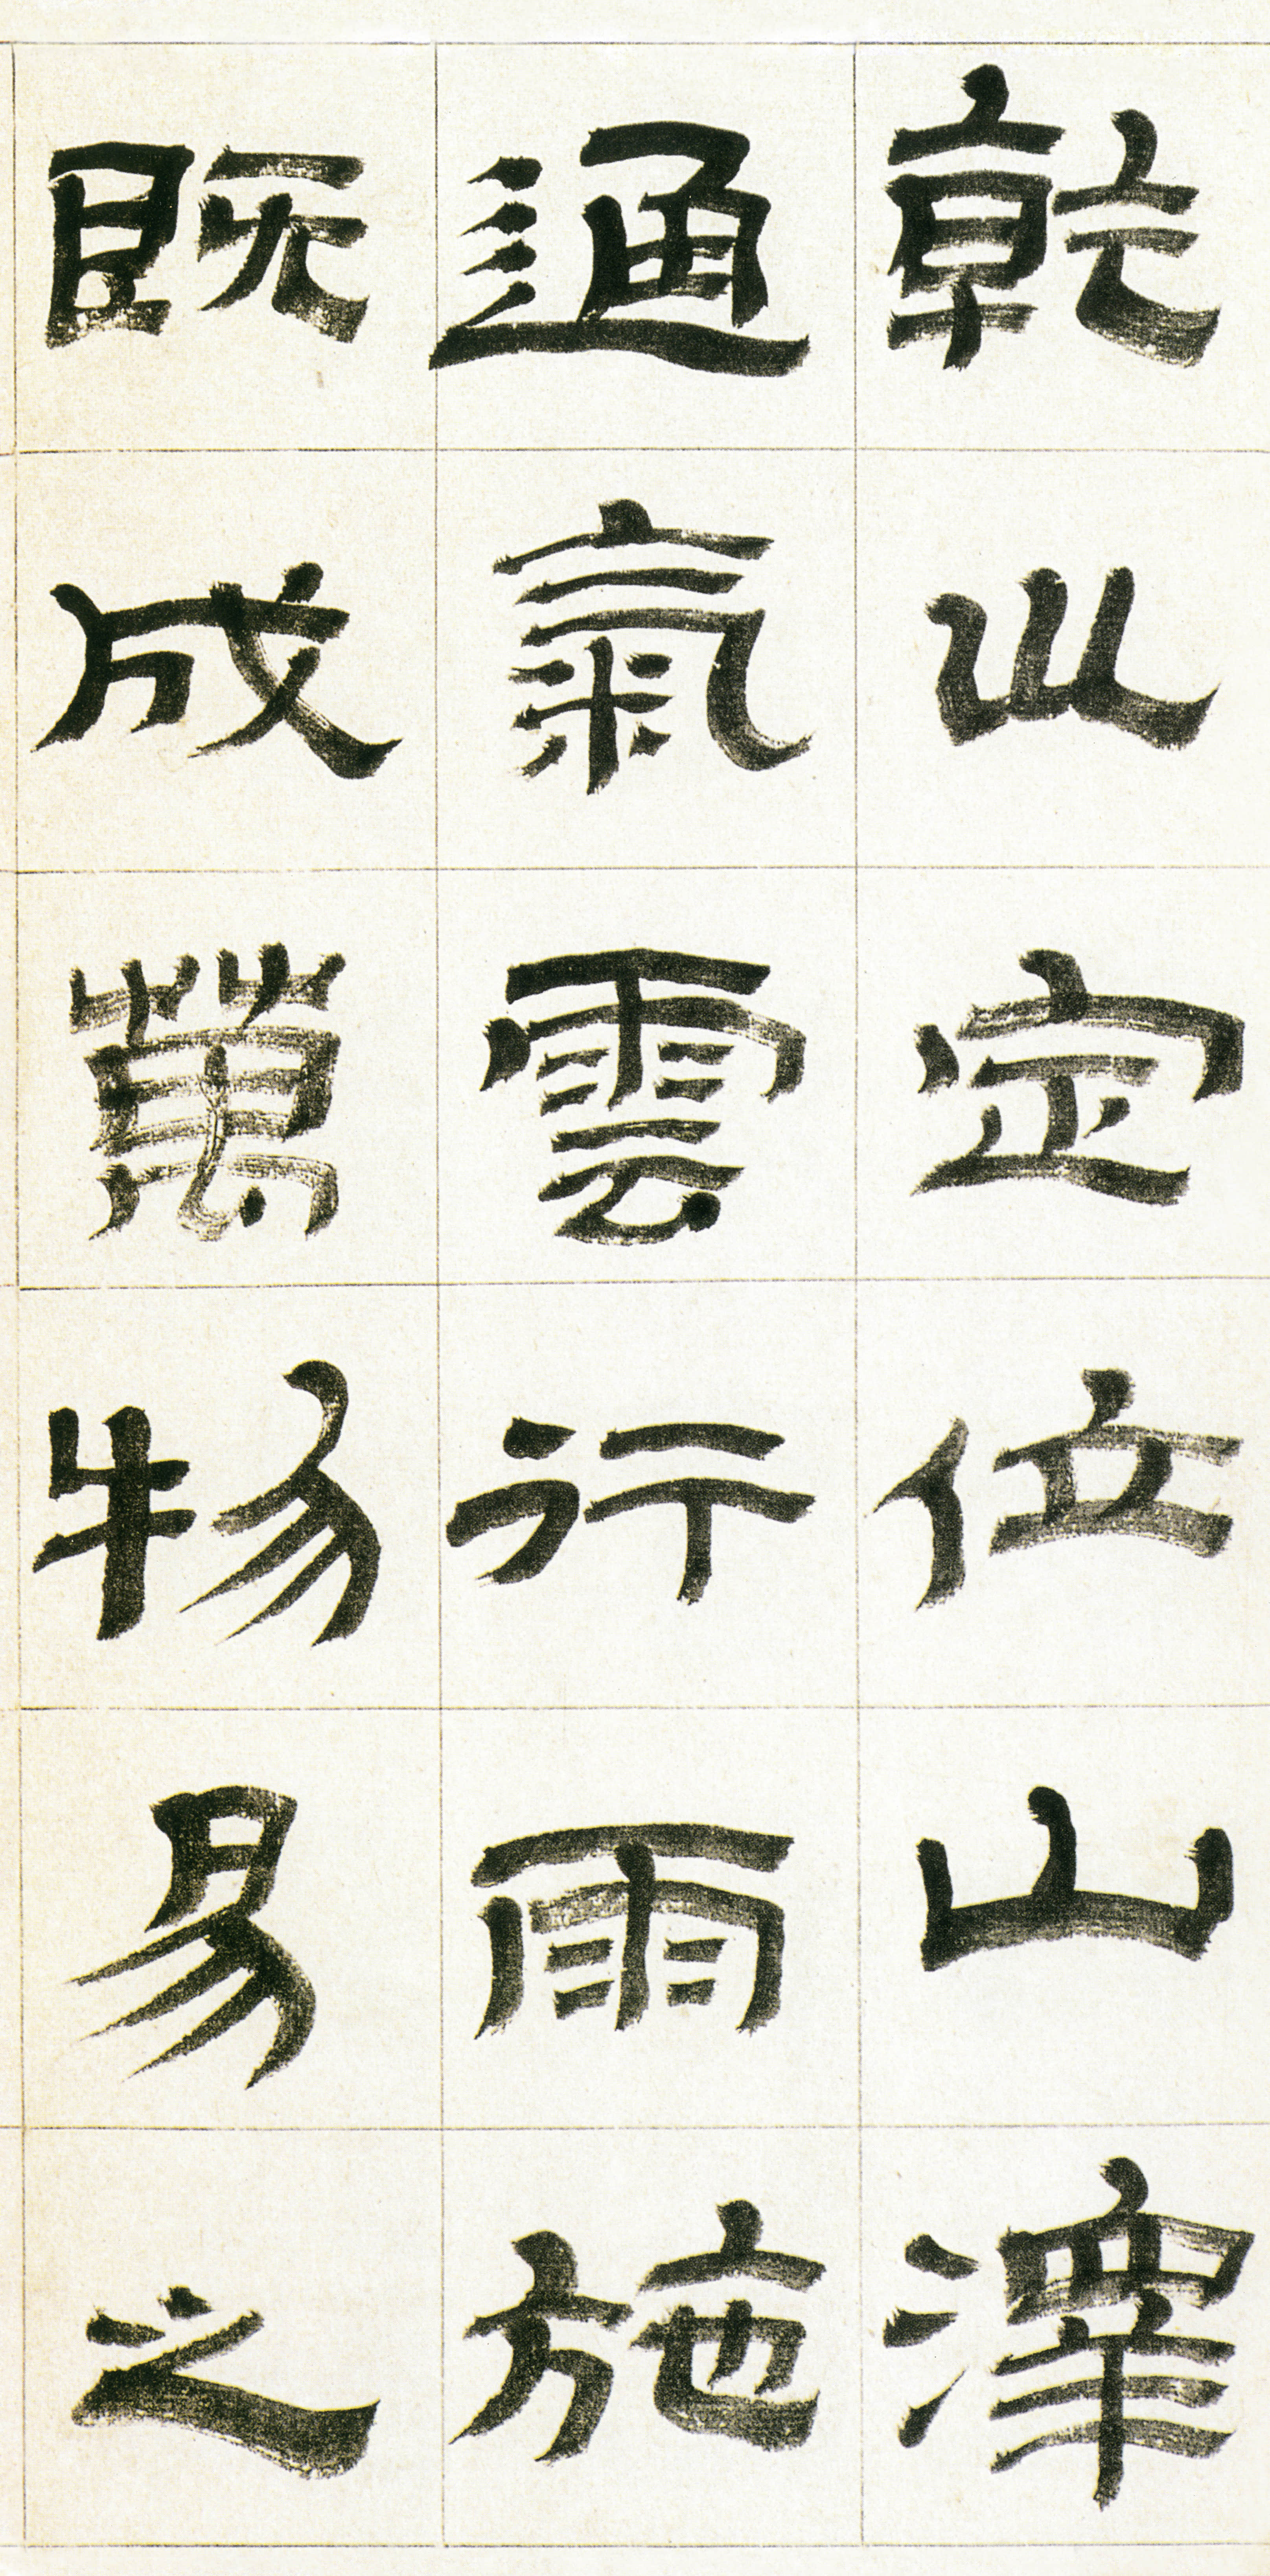 乾巛定位山澤
通氣雲行雨施
既成萬物易之